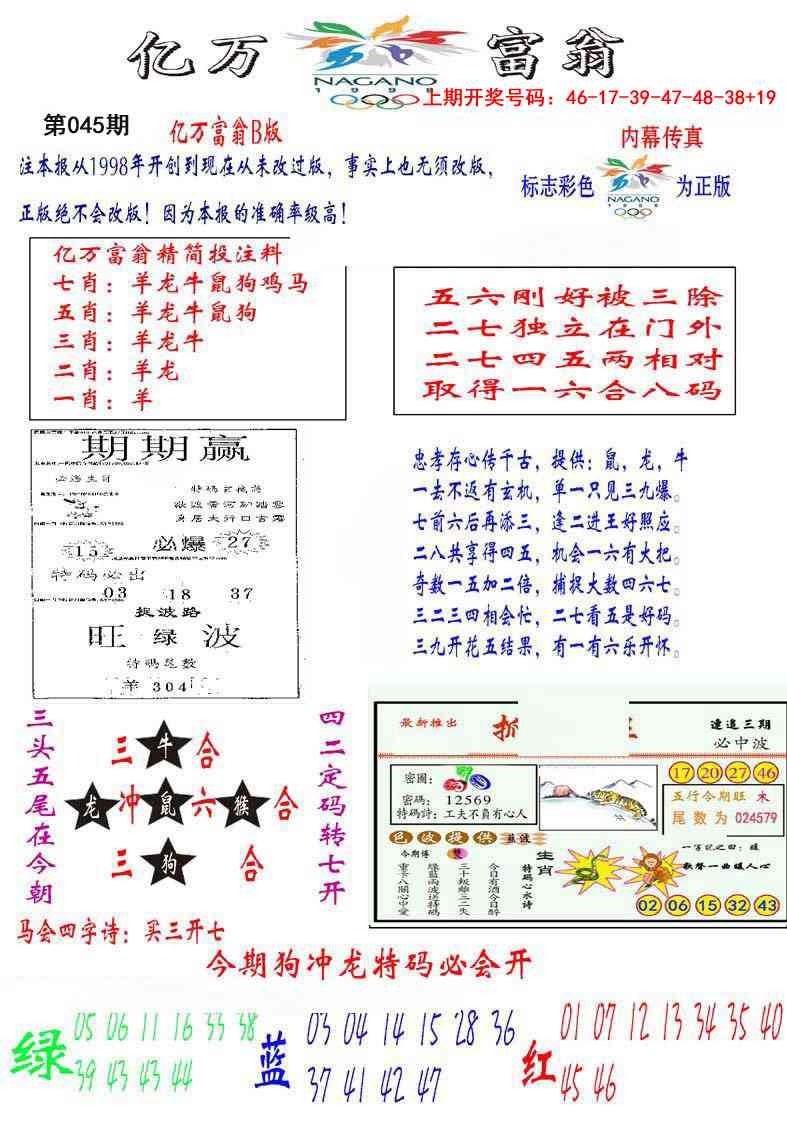 亿万 富翁
NAGANO
1998
上期开奖号码：46-17-39-47-48-38+19
第045期
亿万富翁B版
内幕传真
注本报从1998年开创到现在从未改过版，事实上也无须改版，
正版绝不会改版！因为本报的准确率级高！
标志彩色
NAGANO
1998
为正版
亿万富翁精简投注料
七肖：羊龙牛鼠狗鸡马
五肖：羊龙牛鼠狗
三肖：羊龙牛
二肖：羊龙
一肖：羊
五六刚好被三除
二七独立在门外
二七四五两相对
取得一六合八码
期期赢
必爆
15
27
特码必出
03 18 37
捉波路
旺绿波
特码尾数
羊304
忠孝存心传千古，提供：鼠，龙，牛
一去不返有玄机，单一只见三九爆。
七前六后再添三，逢二进王好照应。
二八共享得四五，机会一六有大把。
奇数一五加二倍，捕捉大数四六七。
三二三四相会忙，二七看五是好码。
三九开花五结果，有一有六乐开怀。
三头五尾在今朝
三 牛 合
龙 冲 鼠 六 猴 合
三 狗 合
四二定码转七开
马会四字诗：买三开七
最新推出
連追三期
必中波
密圖：
密碼：12569
特碼詩：工夫不負有心人
17 20 27 46
五行今期旺 木
尾数为 024579
色波提供 藍波
今期博 雙
重下八關心中愛
綠藍兩波送特碼
三十叛離三二失
今日有酒今日醉
特碼心水诗
生肖
一字记之曰：暖
歌聲一曲暖人心
02 06 15 32 43
今期狗冲龙特码必会开
绿
05 06 11 16 33 38
39 43 43 44
蓝
03 04 14 15 28 36
37 41 42 47
红
01 07 12 13 34 35 40
45 46